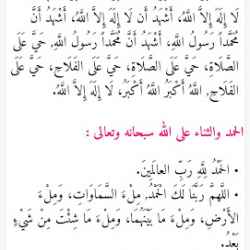 لَا إِلَهَ إِلاَّ اللهُ، أَشْهَدُ أَن لَا إِلَهَ إِلاَّ اللهُ، أَشْهَدُ أَنَّ
مُحَمَّداً رَسُولُ اللَّهِ، أَشْهَدُ أَنَّ مُحَمَّداً رَسُولُ اللَّهِ، حَيَّ عَلَى
الصَّلاَةِ، حَيَّ عَلَى الصَّلاَةِ، حَيَّ عَلَى الفَلَاحِ، حَيَّ عَلَى
الفَلَاحِ، اللهُ أَكْبَرُ اللهُ أَكْبَرُ، لَا إِلَهَ إِلاَّ اللهُ.
الحمد والثناء على الله سبحانه وتعالى :
• الحَمْدُ لِلَّهِ رَبِّ العالَمِينَ.
• اللَّهُمَّ رَبَّنَا لَكَ الْحَمْدُ، مِلءَ السَّمَاوَاتِ، وَمِلْءَ
الأَرْضِ، وَمِلْءَ مَا بَيْنَهُمَا، وَمِلْءَ مَا شِئْتَ مِنْ شَيْءٍ
بَعْدُ.